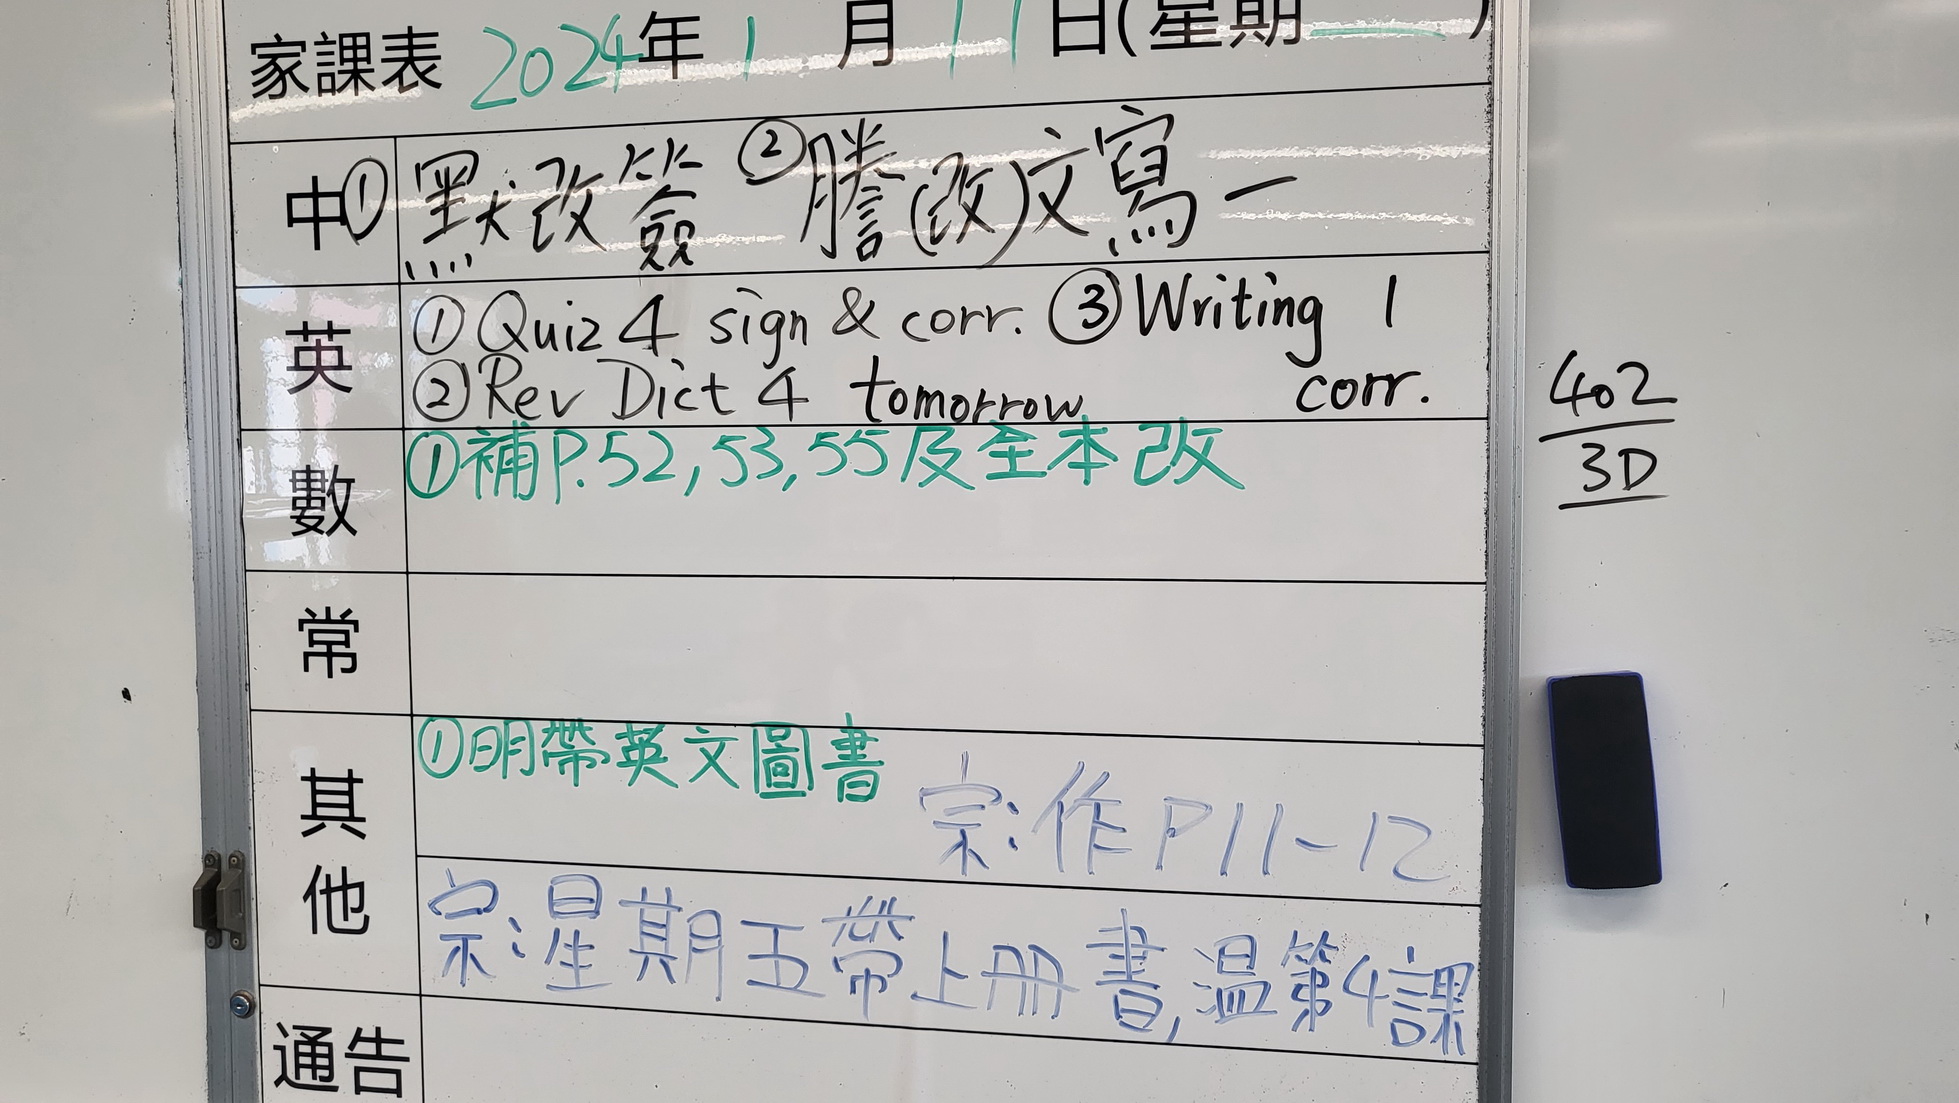 家課表 2024年 1 月 17日(星期 )
中 ①默改簽 ②謄(改)文寫一
英 ①Quiz 4 sign & corr. ③Writing 1
②Rev Dict 4 tomorrow corr.
數 ①補P.52,53,55及全本改
常
其他 ①明帶英文圖書
宗:作P11-12
宗:星期五帶上冊書,温第4課
通告
402
3D